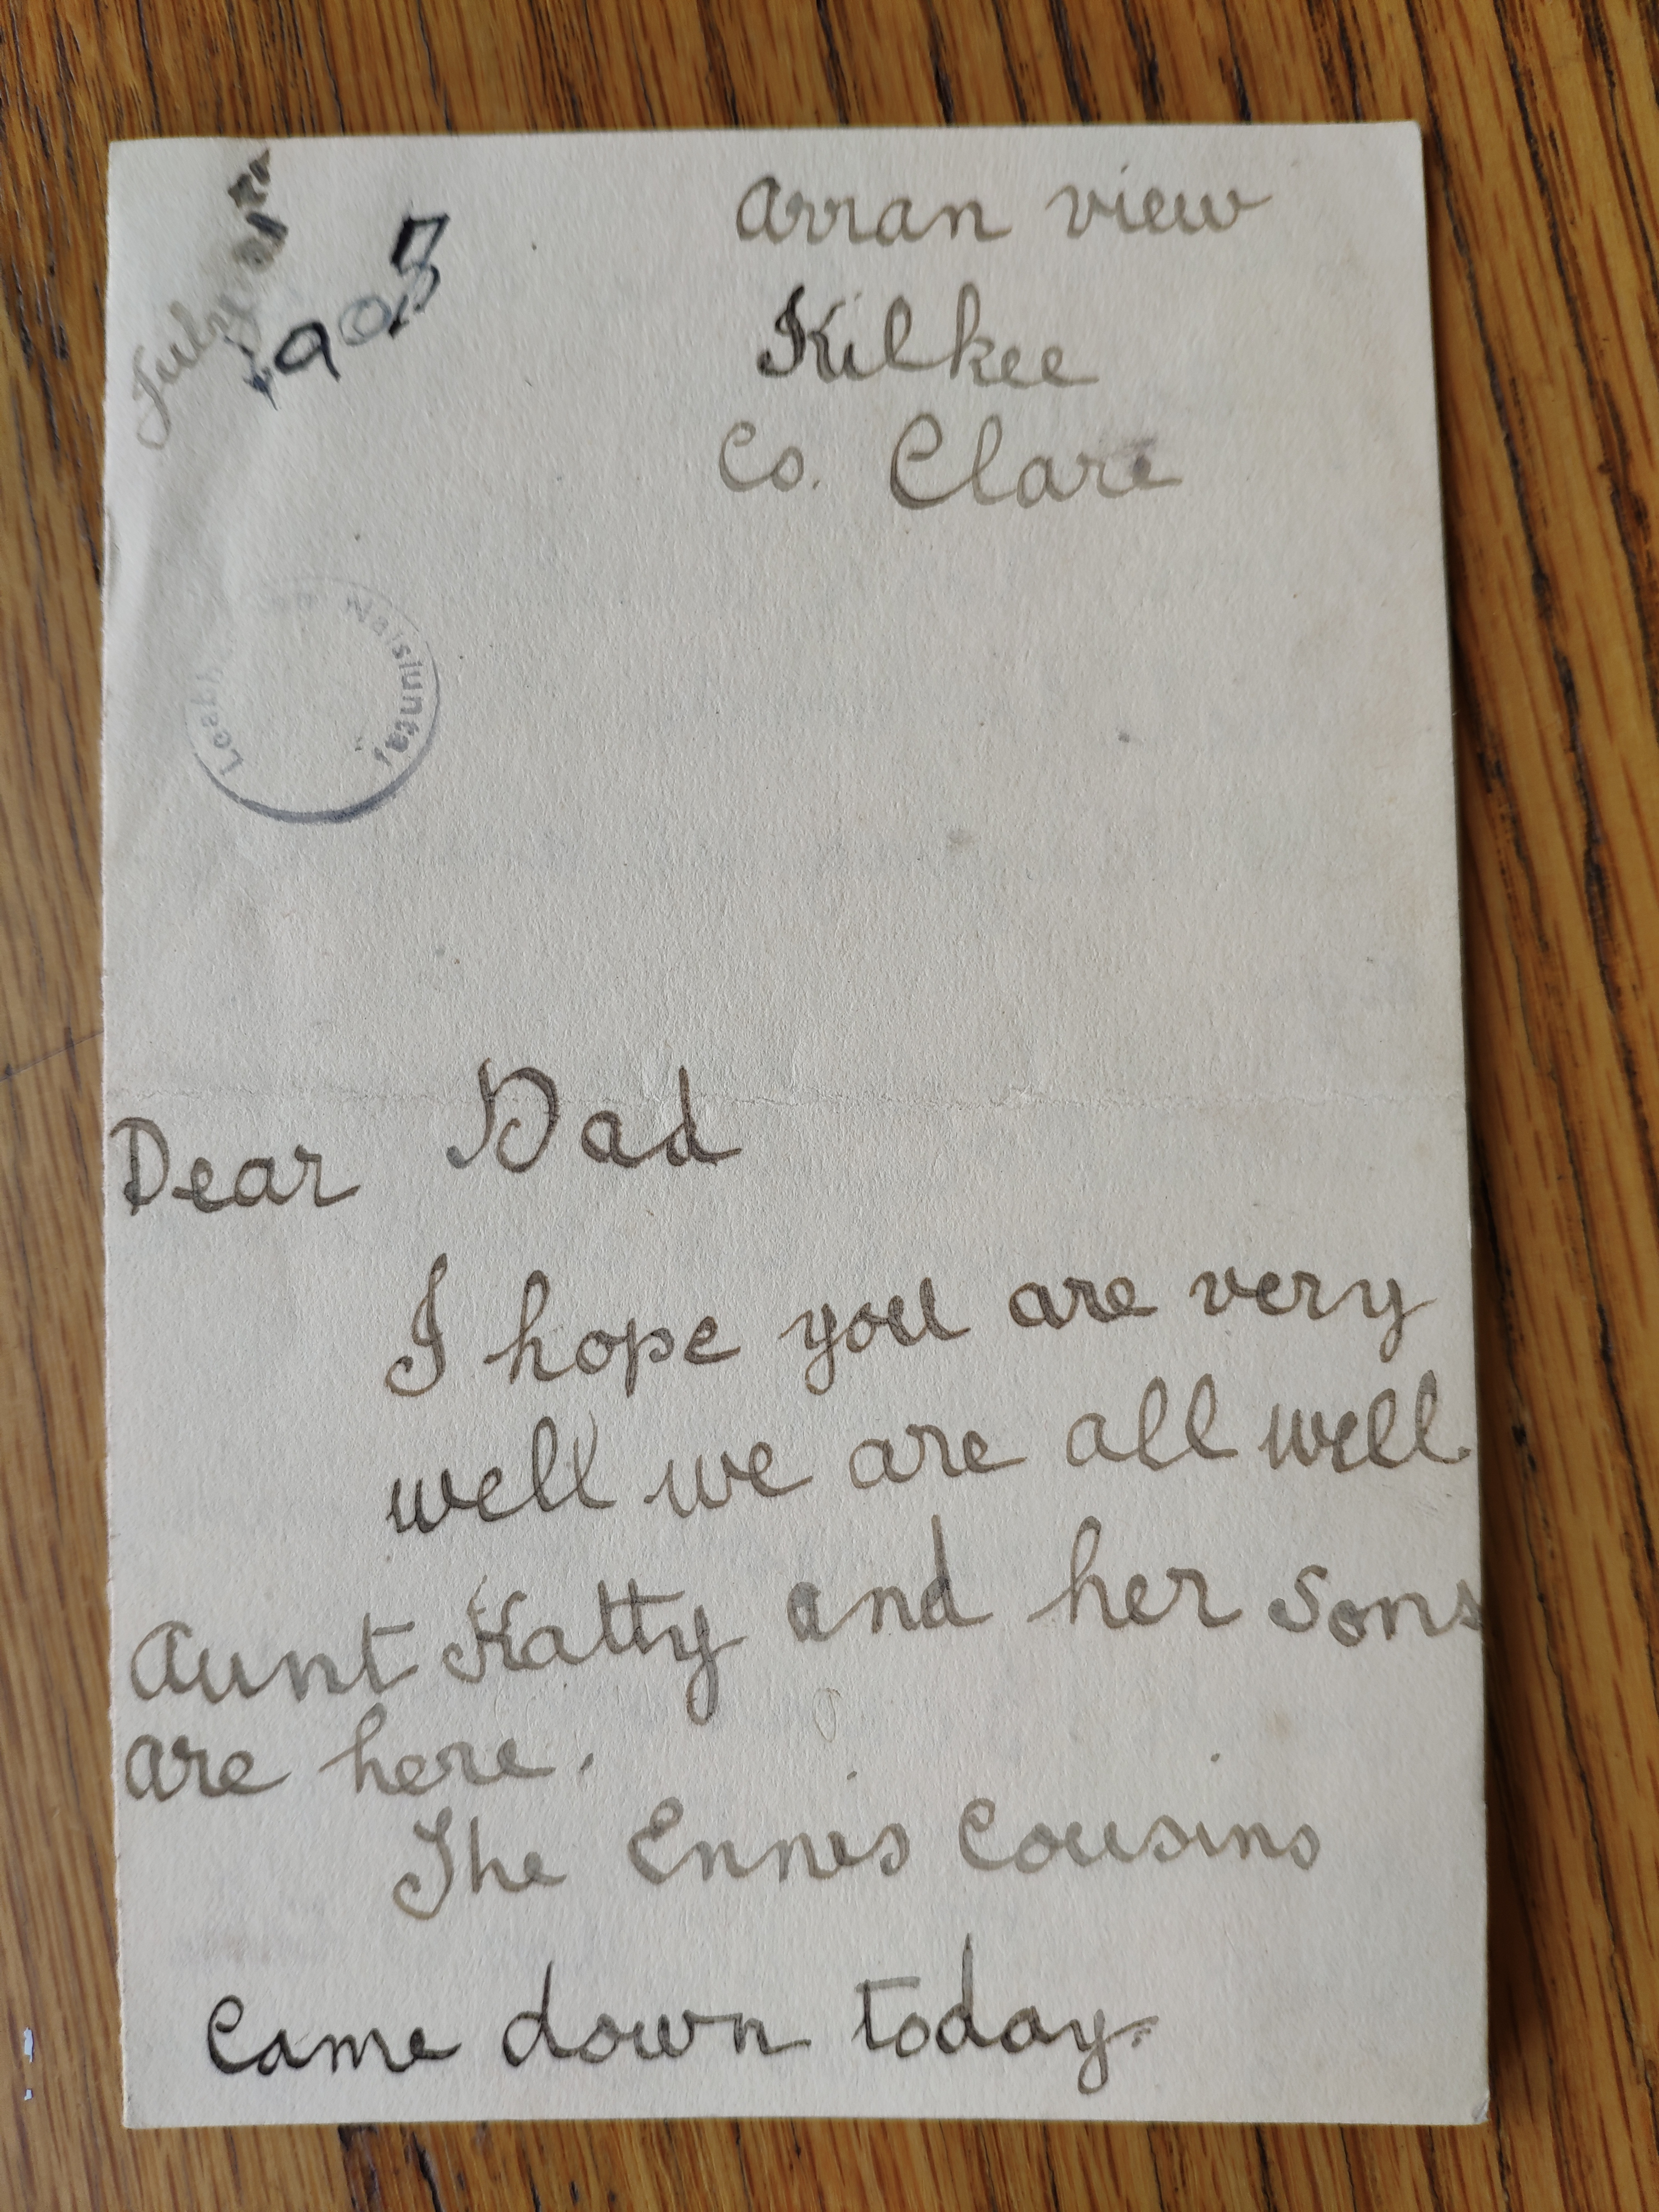 July
190
Arran view
Kilkee
Co. Clare
Náisiúnta,
Dear Dad
I hope you are very
well we are all well
Aunt Katty and her sons
are here.
The Ennis Cousins
Came down today.